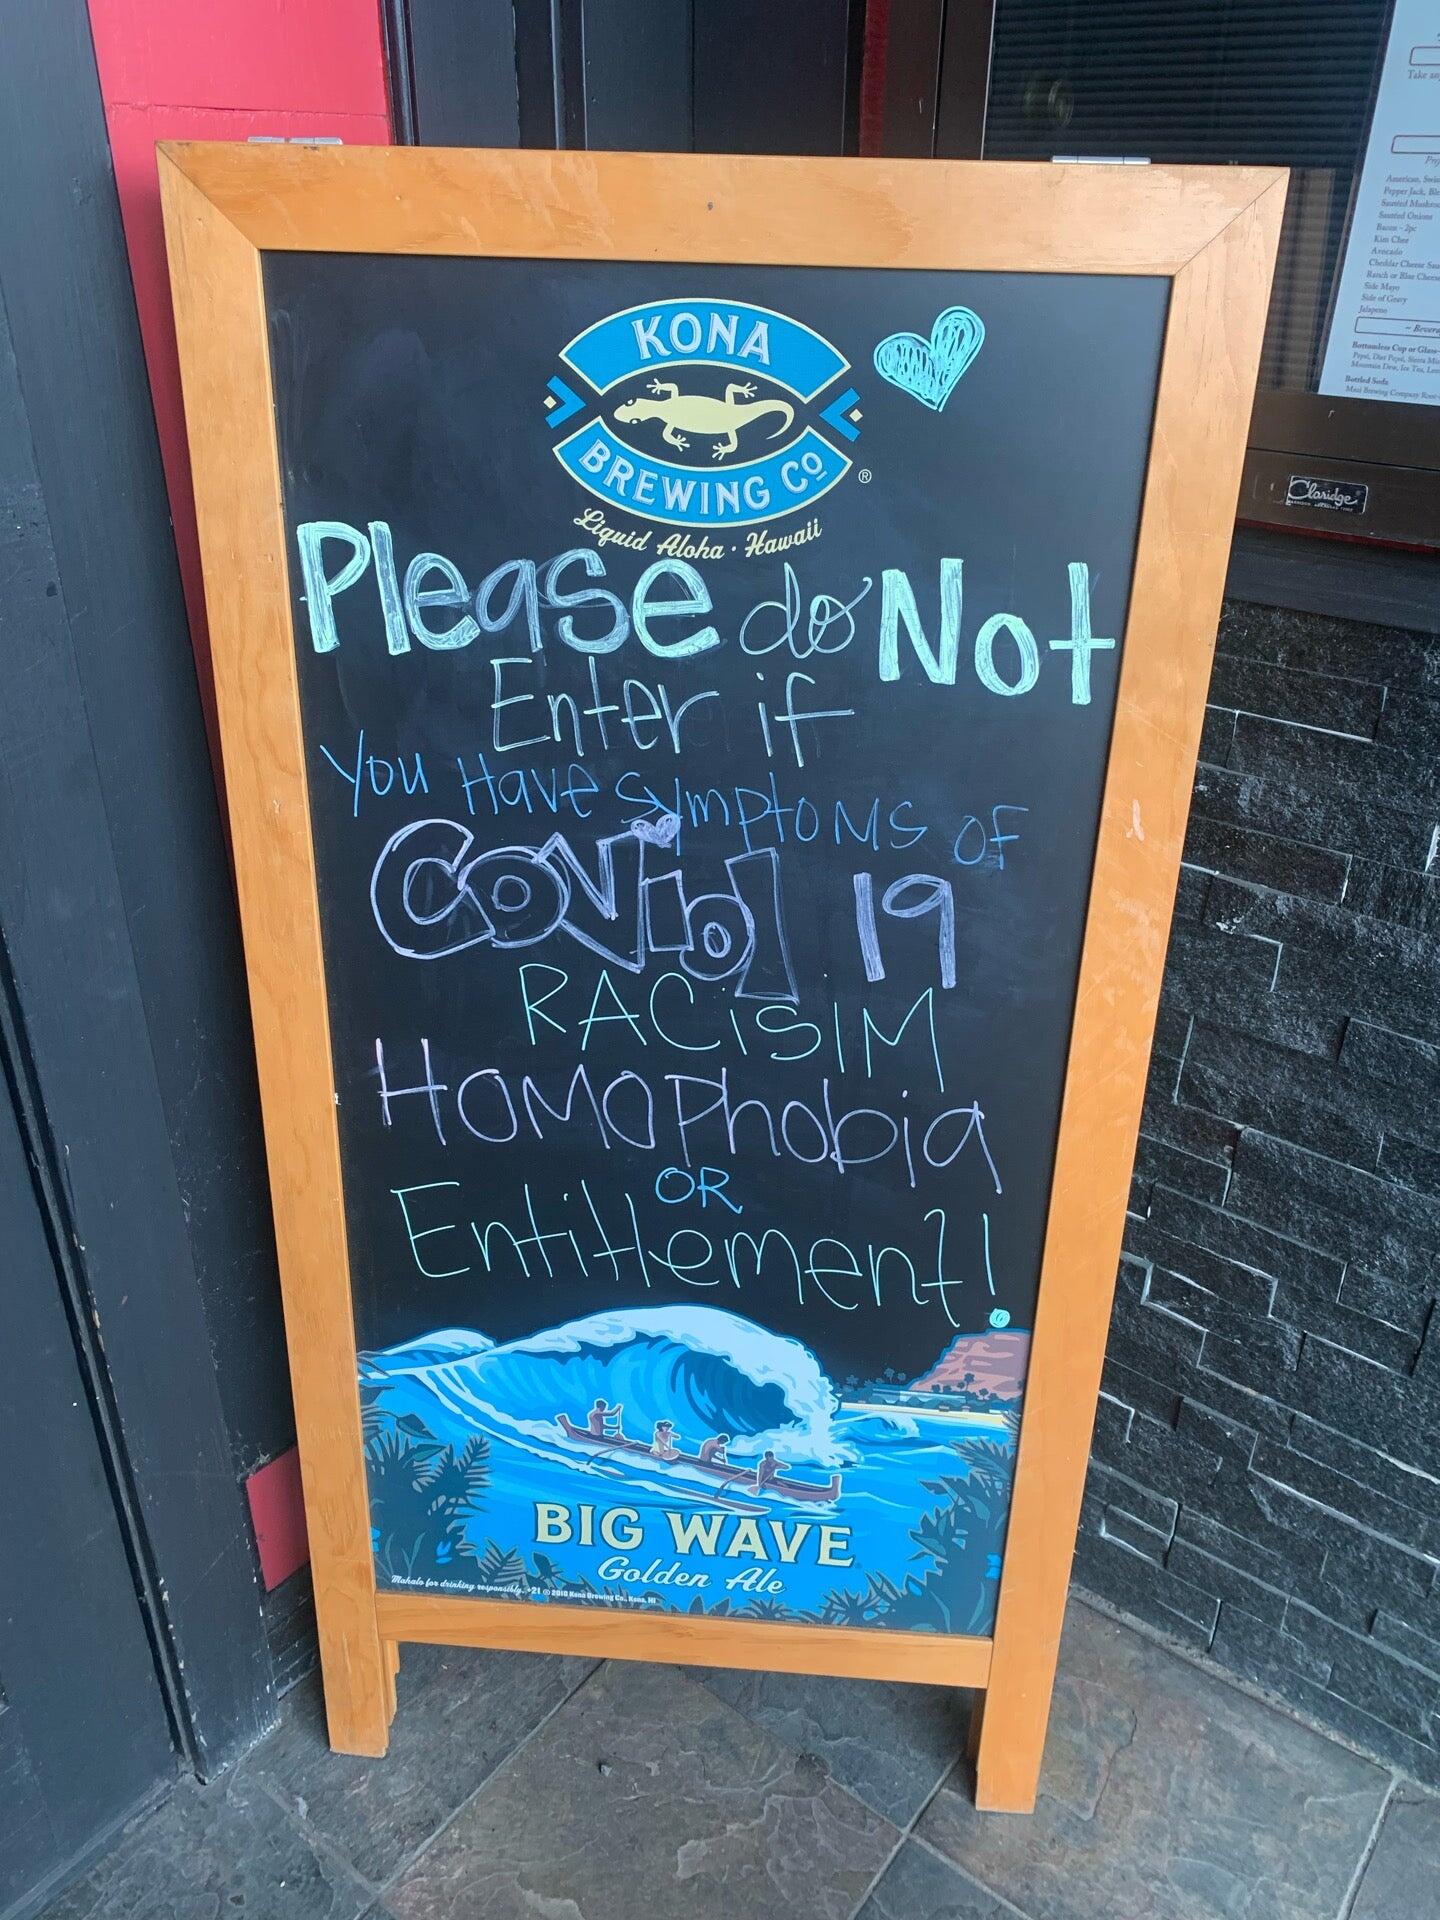 KONA
BREWING CO
®
Liquid Aloha · Hawaii
Please do Not
Enter if
You Have symptoms of
COVid 19
RACisIM
Homophobia
OR
Entitlement!
BIG WAVE
Golden Ale
Mahalo for drinking responsibly. +21 © 2018 Kona Brewing Co., Kona, HI
Take any
American, Swiss
Pepper Jack,
Sautéed
Sautéed Onions
Bacon ~ 2pc
Kim Chee
Avocado
Cheddar Cheese
Ranch or Blue Cheese
Side Mayo
Side of Gravy
Jalapeno
Bottomless Cup or Glass
Pepsi, Diet Pepsi, Sierra
Mountain Dew, Ice Tea,
Bottled Soda
Maui Brewing Company Root
Claridge